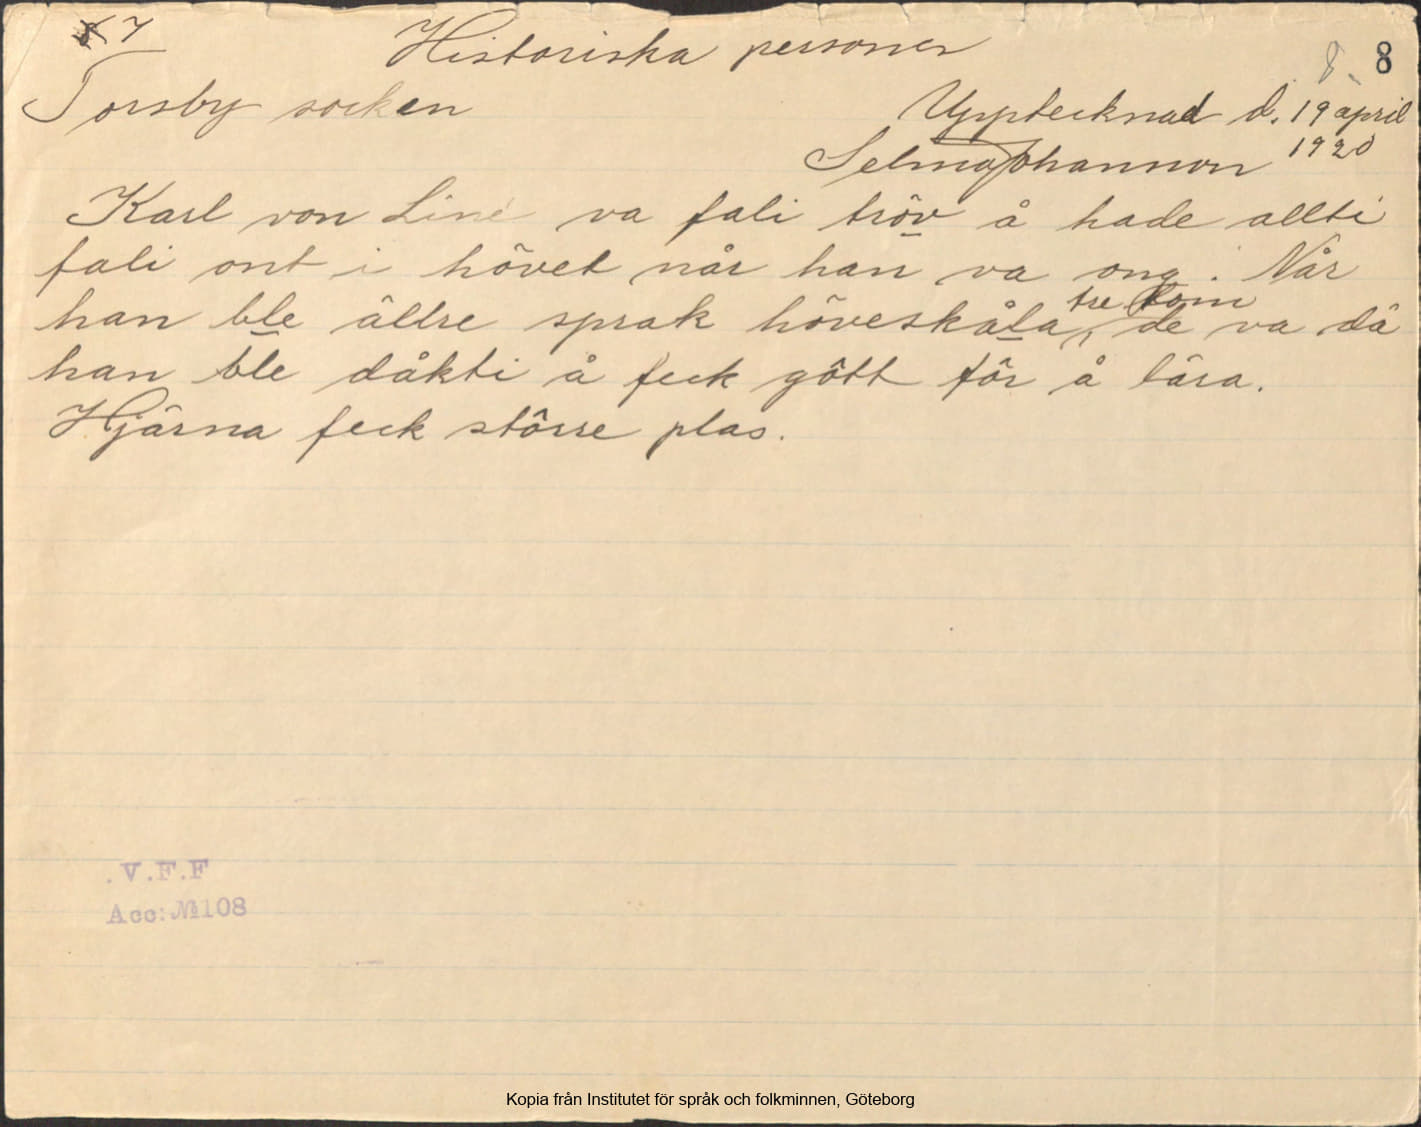 7 Historiska personer 8. 8
Torsby socken Upptecknad d. 19 april
Selma Johansson 1920
Karl von Liné va fali tröv å hade allti
fali ont i hövet når han va ong. Når
han ble ällre sprak höveskåla, de va då
tre tom
han ble dåkti å feck gött för å lära.
Hjärna feck större plas.
V.F.F
Acc: № 108
Kopia från Institutet för språk och folkminnen, Göteborg